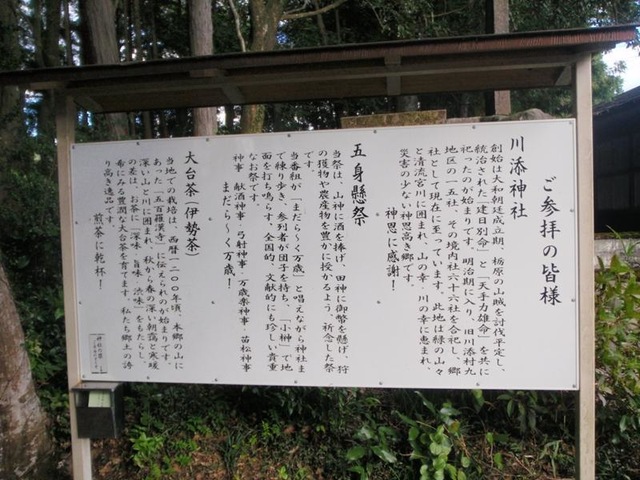 ご参拝の皆様
川添神社
創始は大和朝廷成立期、栃原の山賊を討伐平定し、
統治された「建日別命」と「天手力雄命」を共に
祀ったのが始まりです。明治期に入り、旧川添村九
地区の一五社、その境内社六十六社を合祀し、郷
社として現在に至っています。此地は緑の山々
と清流宮川に囲まれ、山の幸、川の幸に恵まれ、
災害の少ない神恩高き郷です。
神恩に感謝！
五身懸祭
当祭は、山神に酒を捧げ、田神に御幣を懸げ、狩
の獲物や農産物を豊かに授かるよう、祈念した祭
です。
当番組が「まだら～く万歳」と唱えながら神社ま
で練り歩き、参列者が団子を持ち、「小榊」で地
面を打ち鳴らす、全国的、文献的にも珍しい貴重
なお祭です。
神事 献酒神事・弓射神事・万歳楽神事・苗松神事
まだら～く万歳！
大台茶（伊勢茶）
当地での栽培は、西暦一二〇〇年頃、本郷の山に
あった「五百羅漢寺」に伝えられのが始まりです。
深い山と川に囲まれ、秋から春の深い朝靄と寒暖
の差は、お茶に「深味・旨味・渋味」をもたらし、
希にみる豊潤な大台茶を育てます。私たち郷土の誇
り高き逸品です。
煎茶に乾杯！